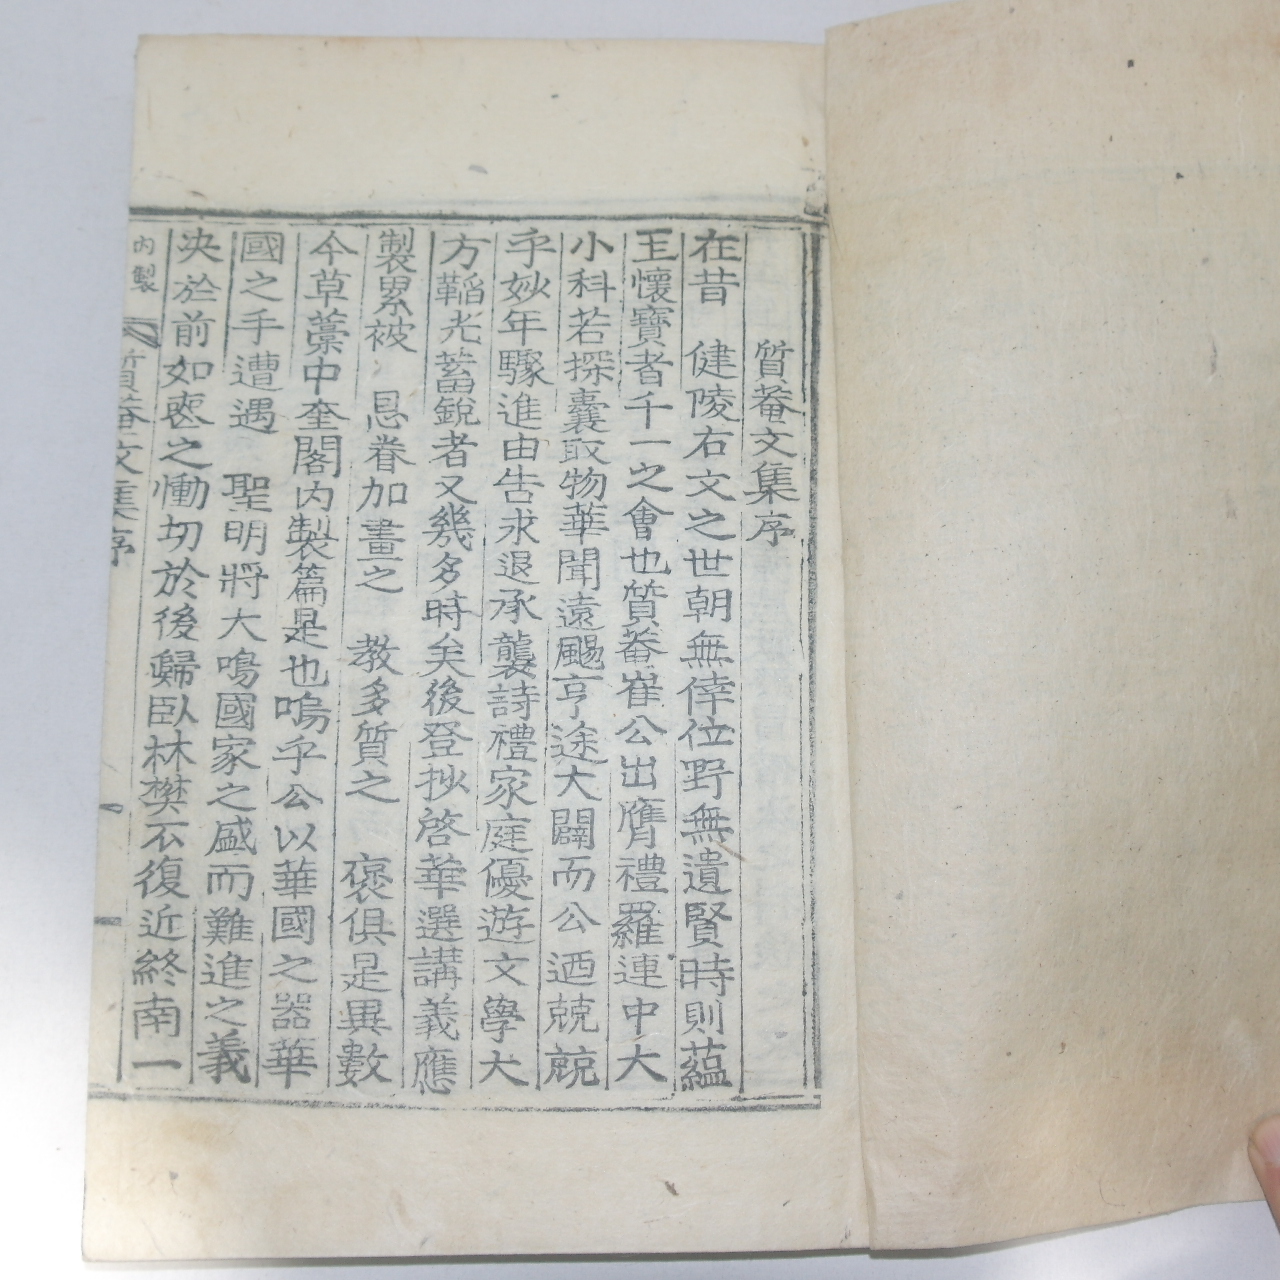 質菴文集序
在昔 健陵右文之世朝無倖位野無遺賢時則蘊
玉懷寶者千一之會也質菴崔公出膺禮羅連中大
小科若探囊取物華聞遠颺亨途大闢而公迺兢兢
乎妙年驟進由告求退承襲詩禮家庭優遊文學大
方韜光蓄銳者又幾多時矣後登抄啓華選講義應
製累被 恩眷加畫之 教多質之 褒俱是異數
今草藁中奎閣內製篇是也嗚乎公以華國之器華
國之手遭遇 聖明將大鳴國家之盛而難進之義
決於前如喪之慟切於後歸臥林樊不復近終南一
內製
質菴文集序